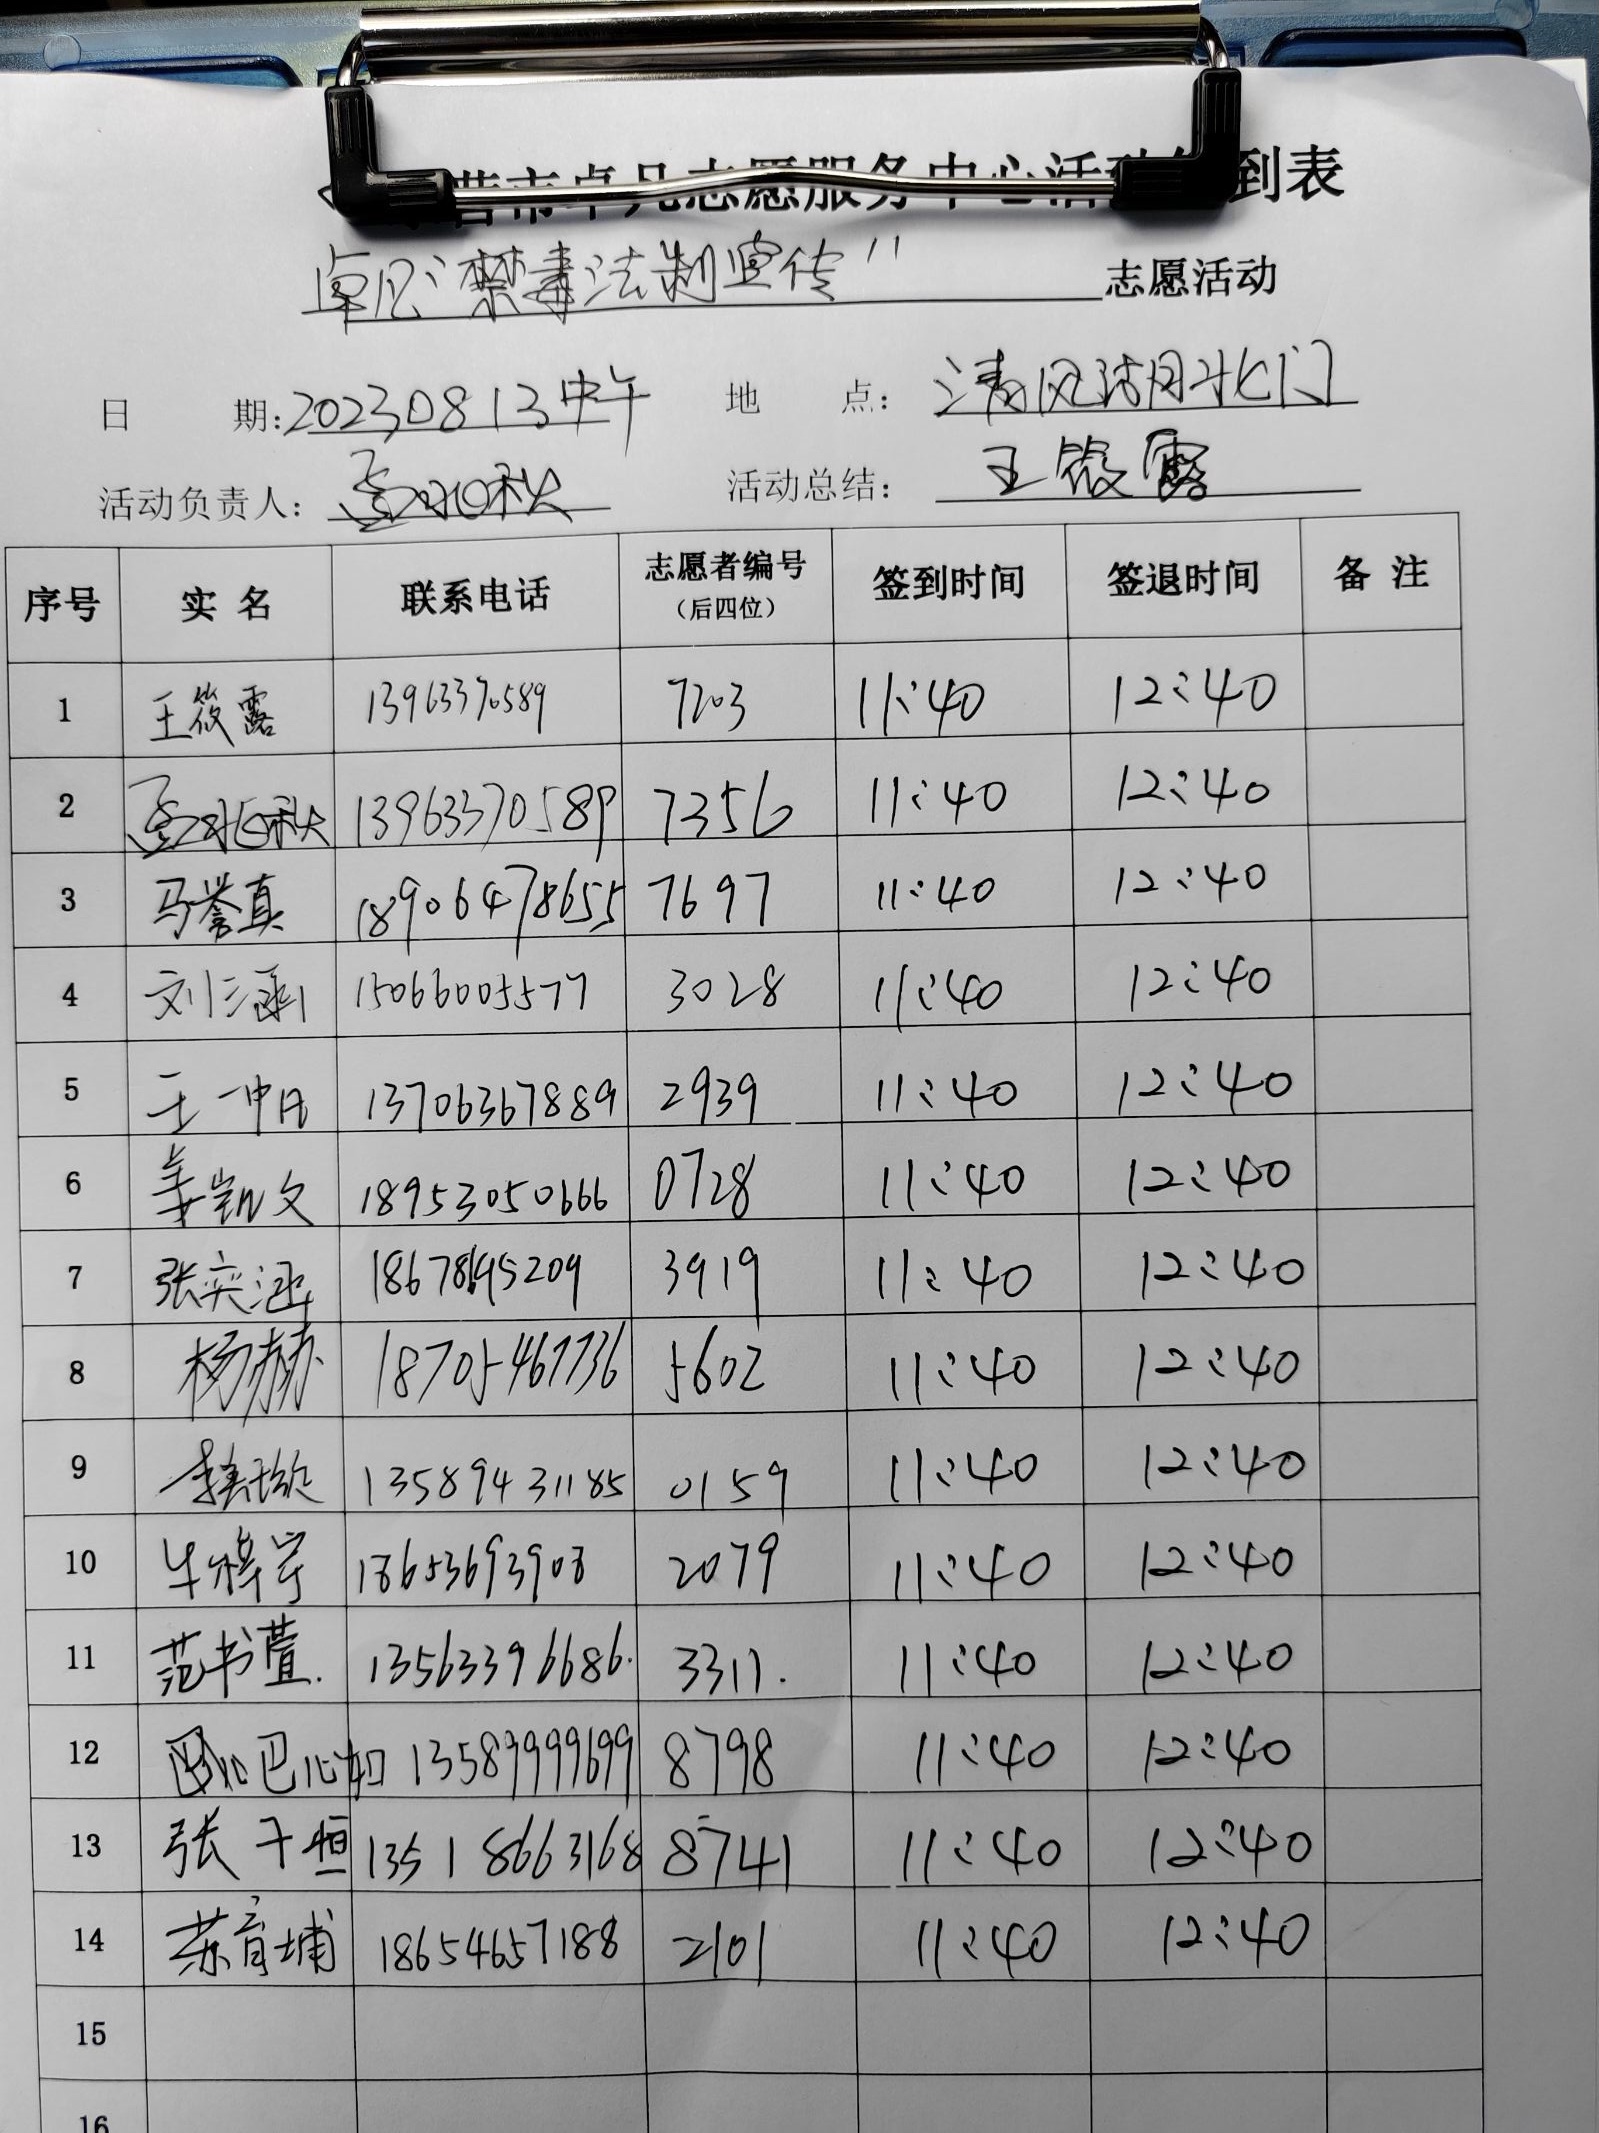 营市卓凡志愿服务中心活动签到表
卓凡“禁毒法制宣传” 志愿活动
日 期: 20230813中午 地 点: 清风湖北门
活动负责人: 活动总结: 王筱露
序号 实名 联系电话 志愿者编号（后四位） 签到时间 签退时间 备注
1 王筱露 13963370589 7203 11:40 12:40
2 13963370589 7356 11:40 12:40
3 马誉真 18906478655 7697 11:40 12:40
4 刘三涵 15066005577 3028 11:40 12:40
5 王一帆 13706367889 2939 11:40 12:40
6 姜凯文 18953050666 0728 11:40 12:40
7 张奕涵 3919 11:40 12:40
8 杨赫 18705467736 5602 11:40 12:40
9 13589431185 0159 11:40 12:40
10 牛梓宇 18653693908 2079 11:40 12:40
11 范书萱. 13563396686. 3311. 11:40 12:40
12 巴心如 13589999699 8798 11:40 12:40
13 张千恒 13518663168 8741 11:40 12:40
14 苏育埔 18654657188 2101 11:40 12:40
15
16